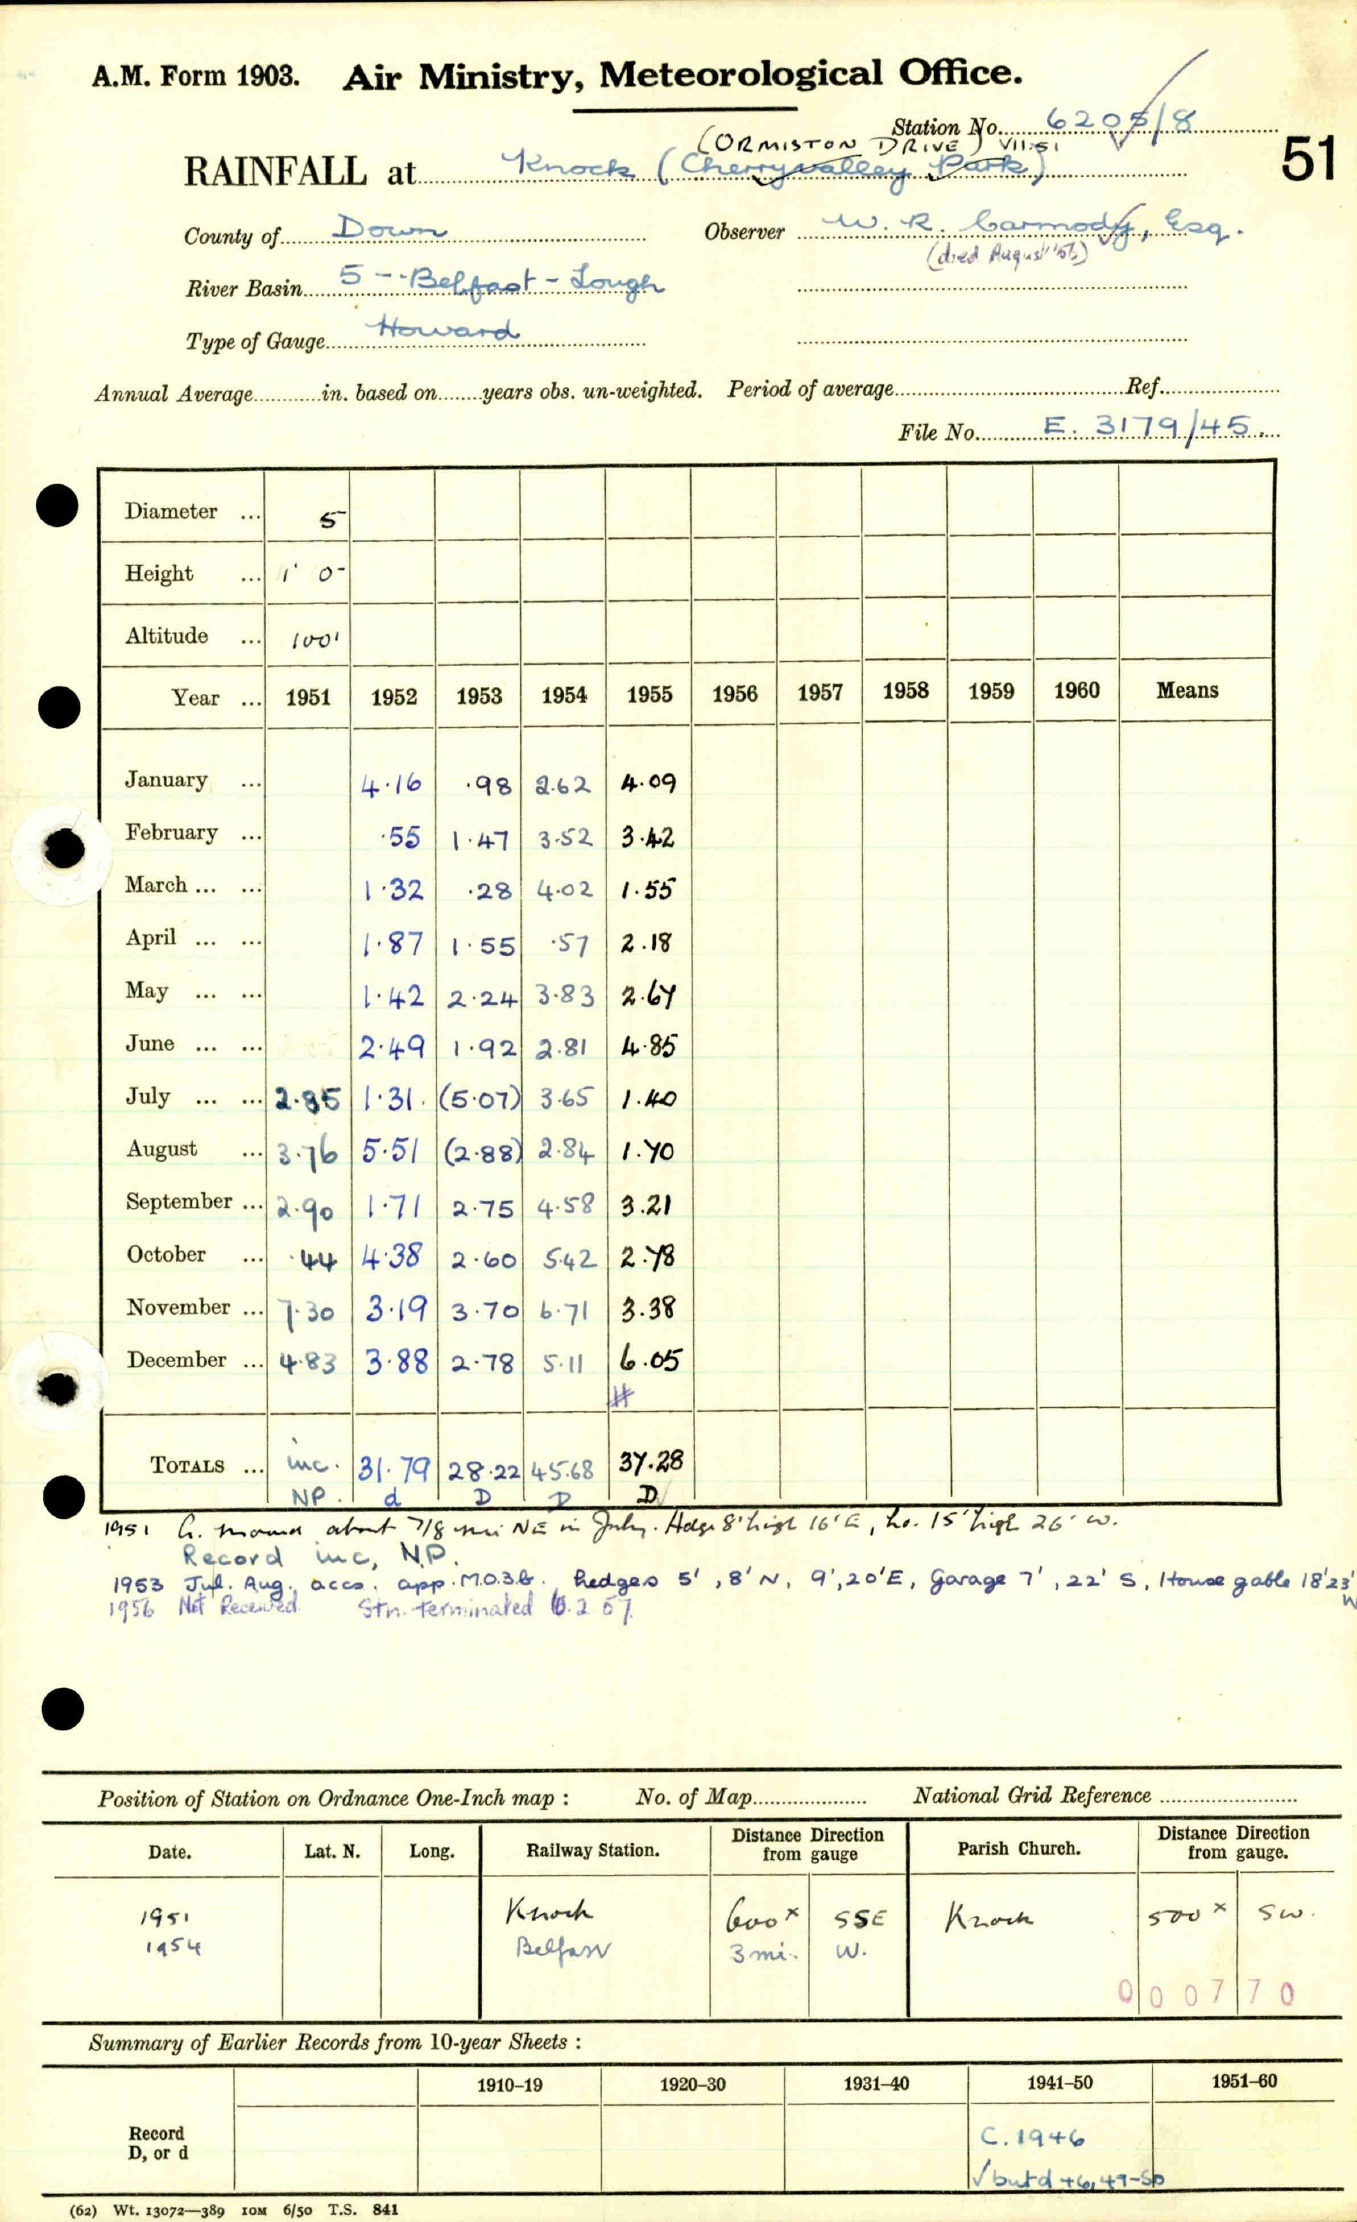 A.M. Form 1903. Air Ministry, Meteorological Office.
Station No. 6205/8
(ORMISTON DRIVE) VII.51
51
RAINFALL at Knock (Cherryvalley Park)
County of Down Observer W. R. Carmody, Esq.
(died August '56)
River Basin 5 - Belfast - Lough
Type of Gauge Howard
Annual Average in. based on years obs. un-weighted. Period of average Ref.
File No. E. 3179/45.
Diameter ... 5
Height ... 1' 0"
Altitude ... 100'
Year ... 1951 1952 1953 1954 1955 1956 1957 1958 1959 1960 Means
January ... 4.16 .98 2.62 4.09
February ... .55 1.47 3.52 3.42
March ... ... 1.32 .28 4.02 1.55
April ... ... 1.87 1.55 .57 2.18
May ... ... 1.42 2.24 3.83 2.67
June ... ... 2.49 1.92 2.81 4.85
July ... ... 2.85 1.31 (5.07) 3.65 1.40
August ... 3.76 5.51 (2.88) 2.84 1.70
September ... 2.90 1.71 2.75 4.58 3.21
October ... .44 4.38 2.60 5.42 2.78
November ... 7.30 3.19 3.70 6.71 3.38
December ... 4.83 3.88 2.78 5.11 6.05
#
TOTALS ... inc. 31.79 28.22 45.68 37.28
NP. d D D D
1951 G. moved about 7/8 mi NE in July. Hedge 8' high 16' E, ho. 15' high 26' W.
Record inc, N.P.
1953 Jul. Aug. accs. app. M.O.3b. hedges 5', 8' N, 9', 20' E, Garage 7', 22' S, House gable 18' 23' W
1956 Not Received. Stn. terminated 6.2.57.
Position of Station on Ordnance One-Inch map : No. of Map National Grid Reference
Date. Lat. N. Long. Railway Station. Distance from gauge Direction Parish Church. Distance from gauge. Direction
1951 Knock 600x SSE Knock 500x SW.
1954 Belfast 3 mi. W.
000770
Summary of Earlier Records from 10-year Sheets :
1910–19 1920–30 1931–40 1941–50 1951–60
Record D, or d C. 1946
√ but d 46, 49-50
(62) Wt. 13072—389 10M 6/50 T.S. 841